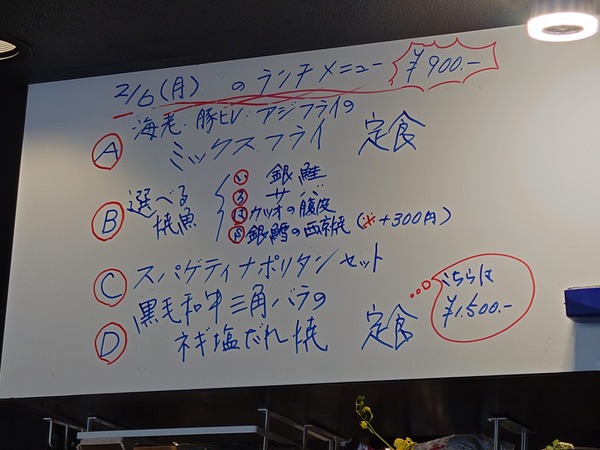 2/6(月) のランチメニュー ¥900.-
A 海老・豚ヒレ・アジフライの
ミックスフライ 定食
B 選べる
焼魚
い 銀鮭
ろ サバ
は カツオの腹皮
に 銀鱈の西京焼(※+300円)
C スパゲティナポリタンセット
D 黒毛和牛三角バラの
ネギ塩だれ焼 定食
こちらは
¥1.500.-